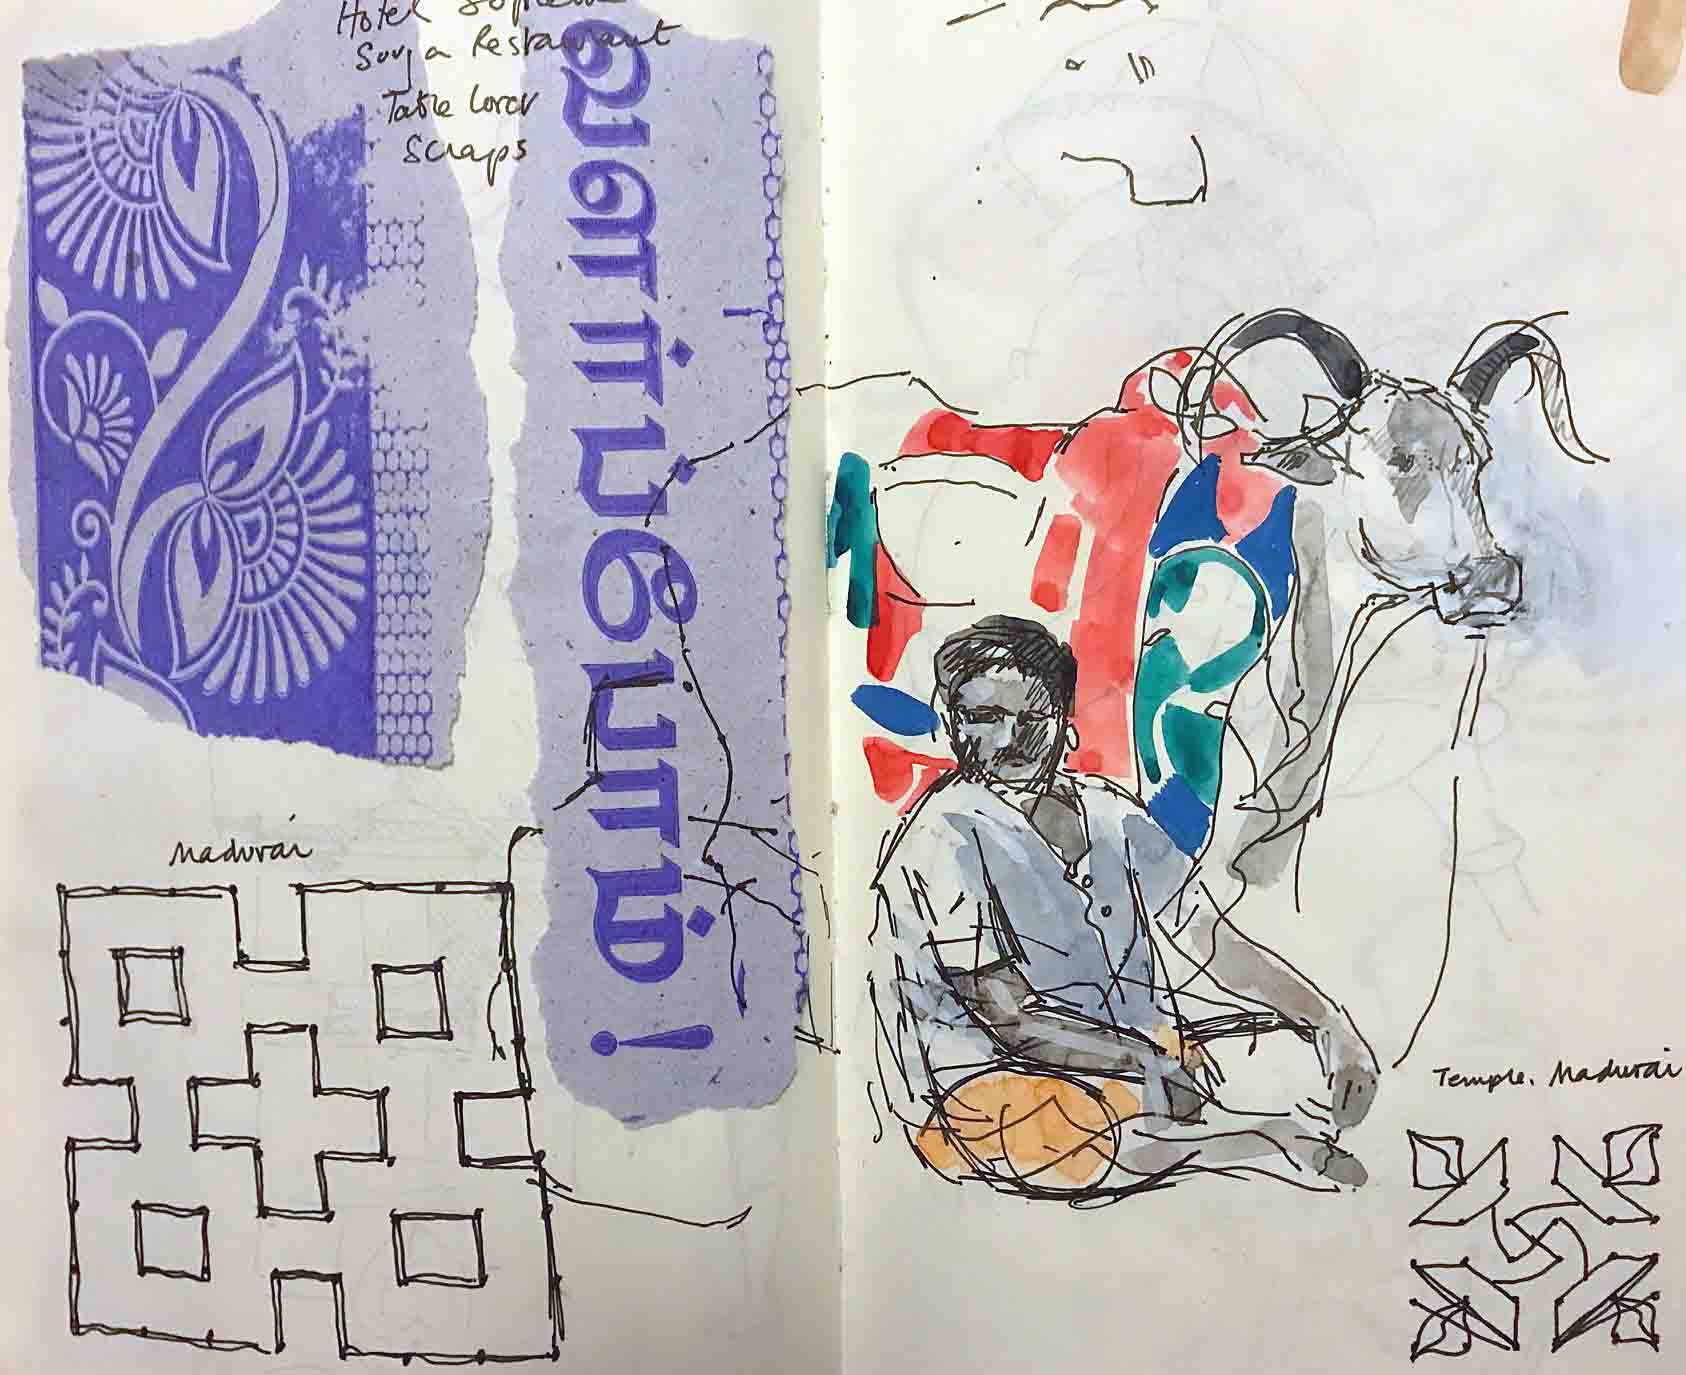 Hotel Supreme
Surya Restaurant
Table Cover
Scraps
வளர்ப்போம் !
Madurai
Temple. Madurai